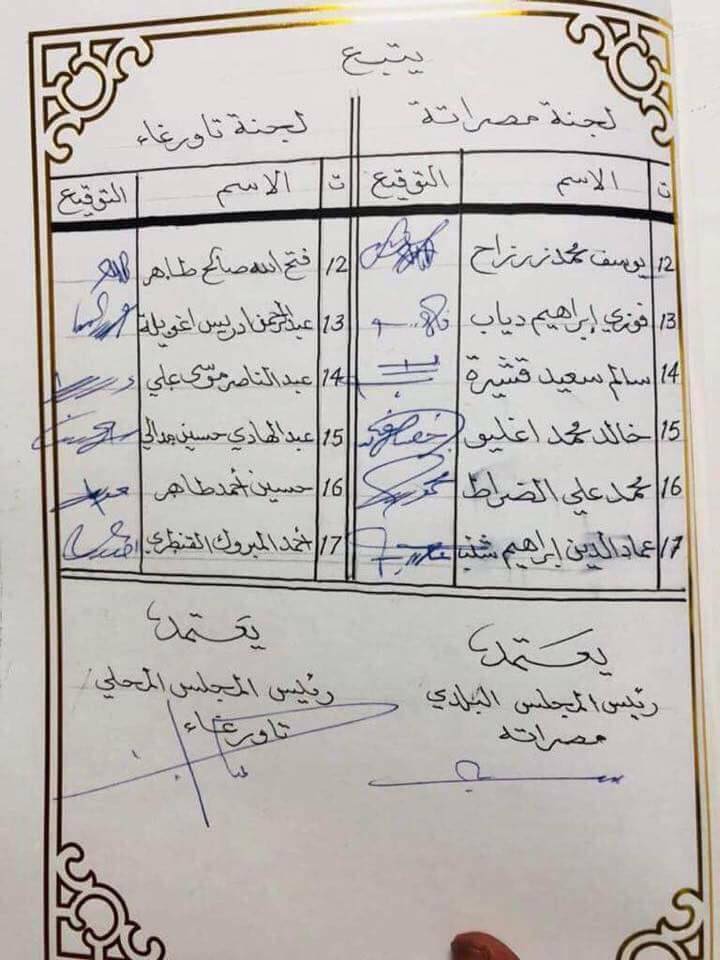 يتبع
لجنة مصراتة
لجنة تاورغاء
ت الاسم التوقيع ت الاسم التوقيع
12 يوسف محمد زرزاح 12 فتح الله صالح طاهر
13 فوزي إبراهيم دياب 13 عبدالرحمن ادريس اغويلة
14 سالم سعيد قشيرة 14 عبد الناصر موسى علي
15 خالد محمد اغليو 15 عبد الهادي حسين
16 محمد علي الضراط 16 حسين أحمد طاهر
17 عماد الدين إبراهيم 17 أحمد المبروك القنطري
يعتمد
رئيس المجلس البلدي
مصراته
يعتمد
رئيس المجلس المحلي
تاورغاء